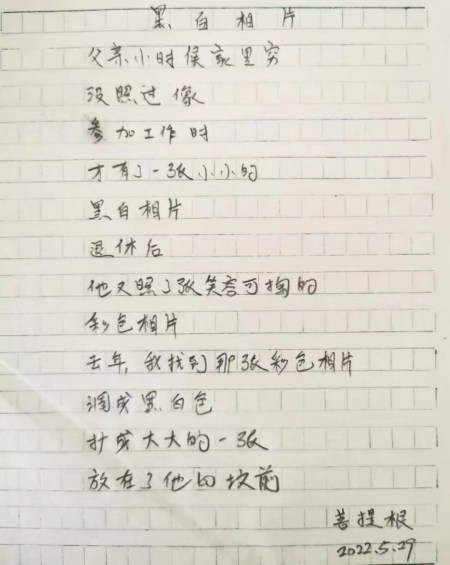 黑白相片
父亲小时侯家里穷
没照过像
参加工作时
才有了一张小小的
黑白相片
退休后
他又照了张笑容可掬的
彩色相片
去年,我找到那张彩色相片
调成黑白色
扩成大大的一张
放在了他的坟前
菩提根
2022.5.29